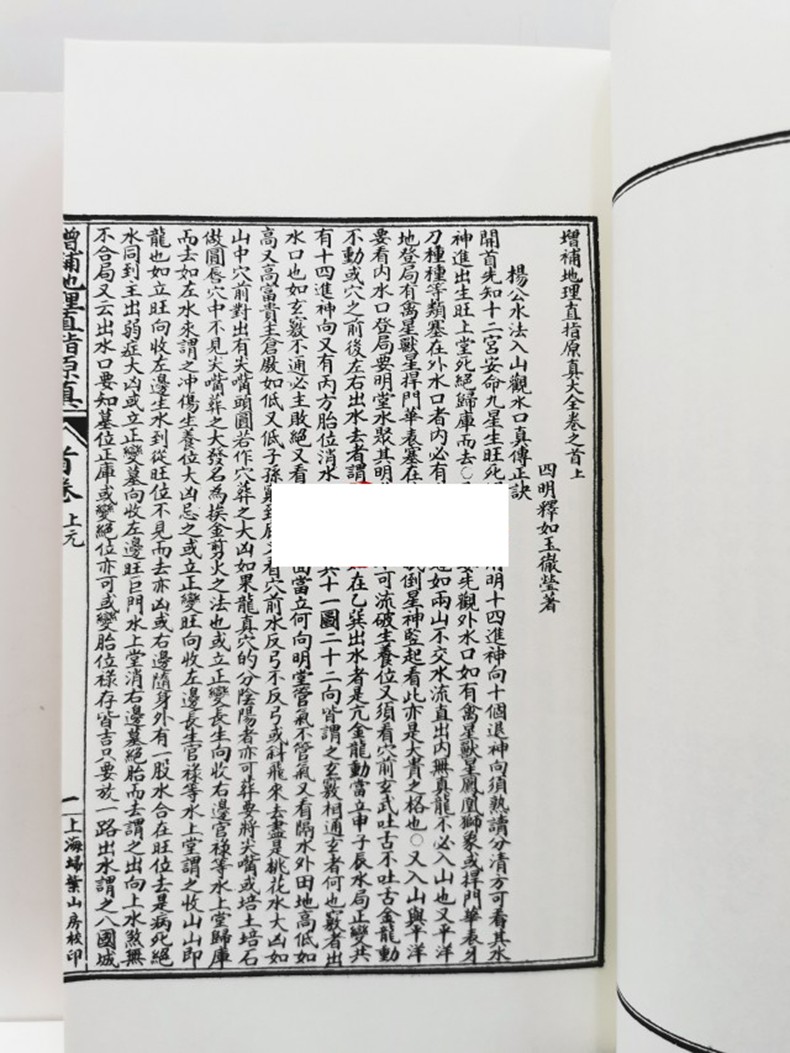 增補地理直指原真大全卷之首上
四明釋如玉徹瑩著
楊公水法入山觀水口真傳正訣
開首先知十二宮安命九星生旺死 清明十四進神向十個退神向須熟讀分清方可看其水
神進出生旺上堂死絕歸庫而去○ 要先觀外水口如有禽星獸星鳳凰獅象或捍門華表牙
刀種種等類塞在外水口者內必有 如兩山不交水流直出內無真龍不必入山也又平洋
地登局有禽星獸星捍門華表塞在 倒星神監起看此亦是大貴之格也○又入山與平洋
要看內水口登局要明堂水聚其明 可流破生養位又須看穴前玄武吐舌不吐舌金龍動
不動或穴之前後左右出水去者謂 在乙巽出水者是亢金龍動當立申子辰水局正變共
有十四進神向又有丙方胎位消水 共十一圖二十二向皆謂之玄竅相通玄者何也竅者出
水口也如玄竅不通必主敗絕又看 面當立何向明堂管氣不管氣又看隔水外田地高低如
高又高富貴主倉廒如低又低子孫 到底又看穴前水反弓不反弓或斜飛來去盡是桃花水大凶如
山中穴前對出有尖嘴頭圓若作穴葬之大凶如果龍真穴的分陰陽者亦可葬要將尖嘴或培土培石
做圓唇穴中不見尖嘴葬之大發名為挨金剪火之法也或立正變長生向收右邊官祿等水上堂歸庫
而去如左水來謂之冲傷生養位大凶忌之或立正變旺向收左邊長生官祿等水上堂謂之收山山即
龍也如立旺向收左邊生水到從旺位不見而去亦凶或右邊隨身外有一股水合在旺位去是病死絕
水同到主出弱症大凶或立正變墓向收左邊旺巨門水上堂消右邊墓絕胎而去謂之出向上水煞無
不合局又云出水口要知墓位正庫或變絕位亦可或變胎位祿存皆吉只要放一路出水謂之八國城
增補地理直指原真 首卷 上元 一 上海埽葉山房校印